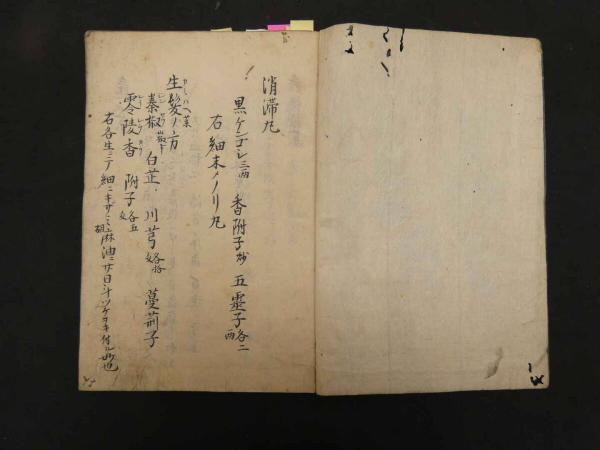 消滞丸
黒ケンゴシ三両 香附子炒 五霊子各二両
右細末メノリ丸
カミハヘ薬
生髪ノ方
秦椒 白芷 川芎各拾 蔓荊子
零陵香 附子各五
右各生ニテ細ニキザミ胡麻油ニ廿日斗ツケヲキ付ル妙也